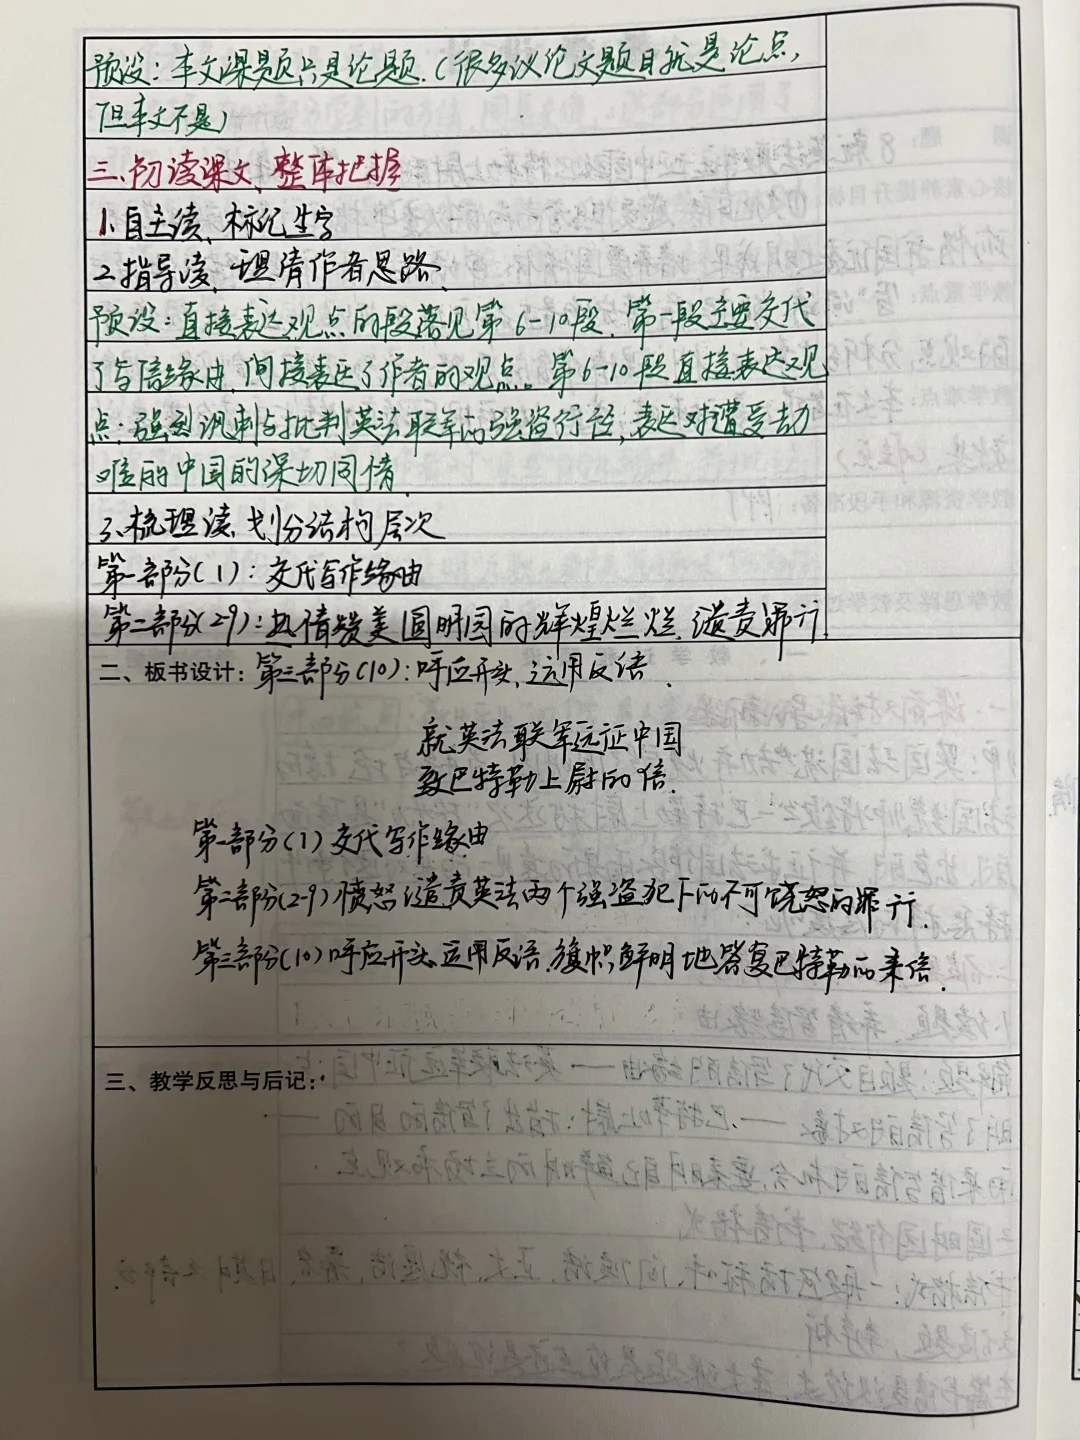 预设：本文课题只是论题.（很多议论文题目就是论点,
但本文不是）
三、初读课文、整体把握
1.自主读、标记生字
2.指导读、理清作者思路
预设：直接表达观点的段落见第6-10段.第一段主要交代
了写信缘由,间接表达了作者的观点。第6-10段直接表达观
点：强烈讽刺与批判英法联军的强盗行径,表达对遭受劫
难的中国的深切同情
3.梳理读、划分结构层次
第一部分(1)：交代写作缘由
第二部分(2-9)：热情赞美圆明园的辉煌灿烂.谴责罪行
二、板书设计：第三部分(10)：呼应开头,运用反语.
就英法联军远征中国
致巴特勒上尉的信.
第一部分(1)交代写作缘由
第二部分(2-9)愤怒谴责英法两个强盗犯下的不可饶恕的罪行.
第三部分(10)呼应开头运用反语.旗帜鲜明地答复巴特勒的来信.
三、教学反思与后记：